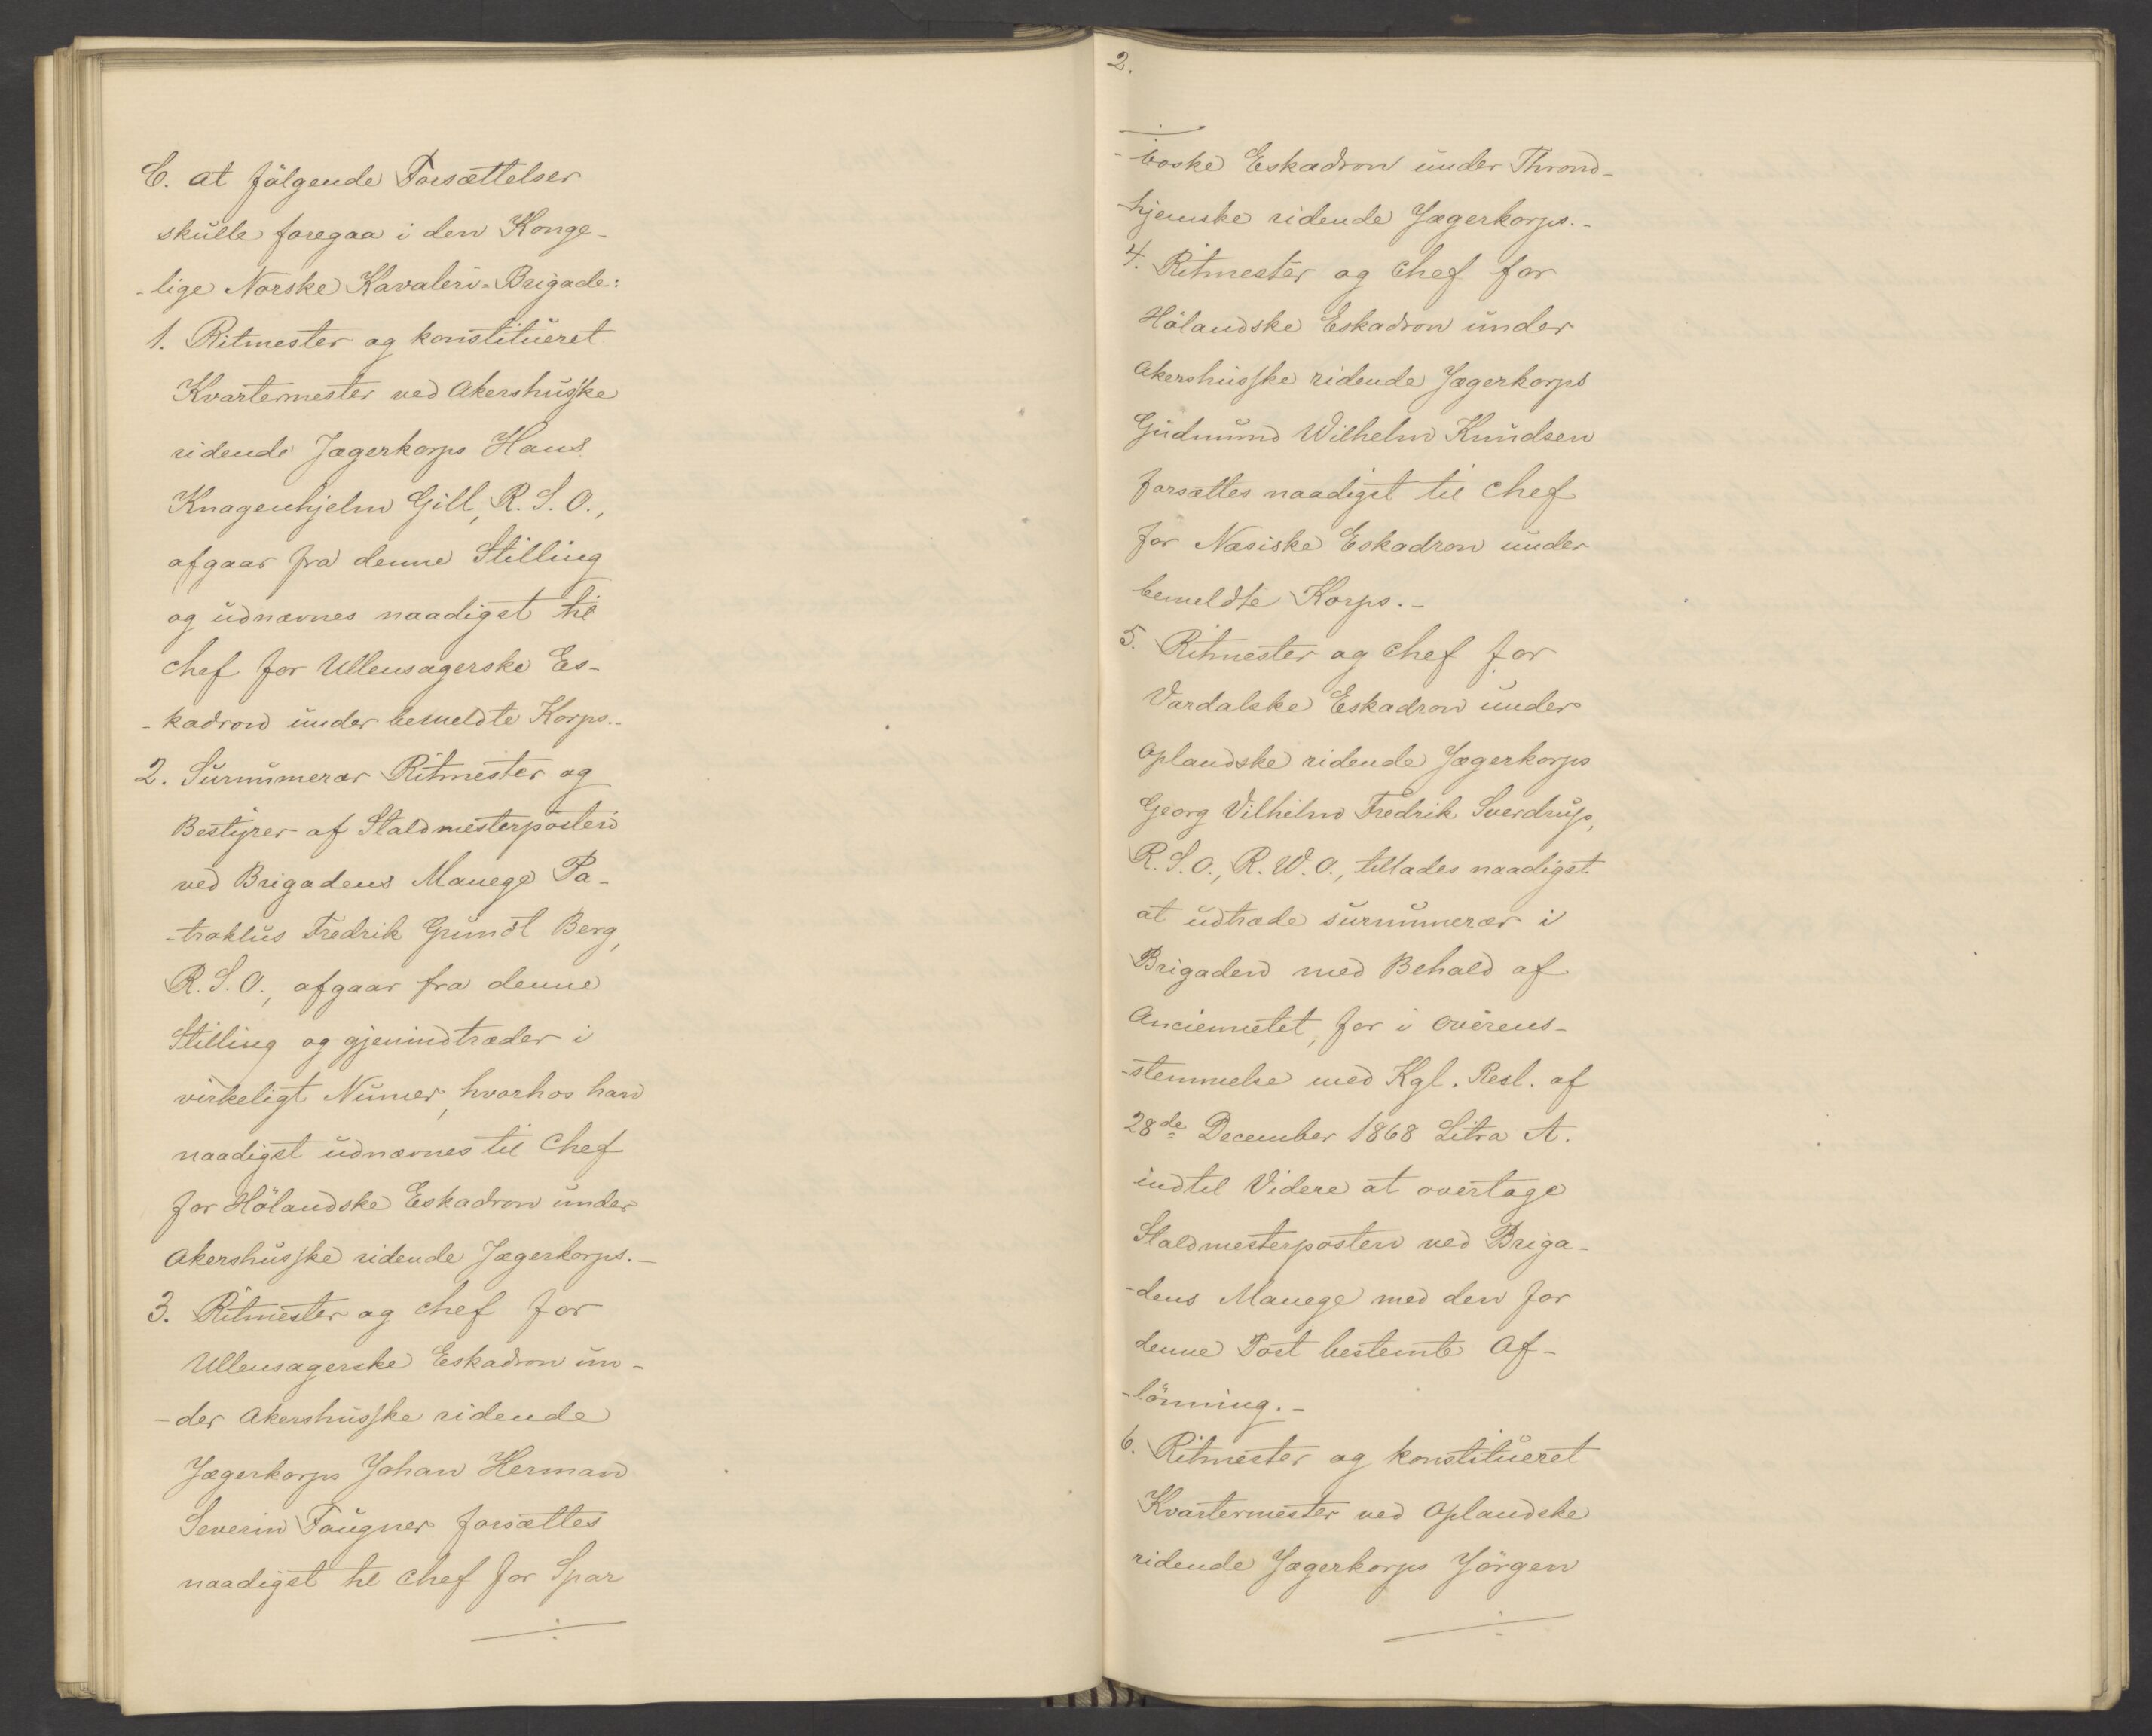 C. at følgende Forsættelser
skulle foregaa i den Konge-
-lige Norske Kavaleri-Brigade:
1. Ritmester og konstitueret
Kvartermester ved Akershusske
ridende Jægerkorps Hans
Knagenhjelm Gill, R. S. O.,
afgaar fra denne Stilling
og udnævnes naadigst til
Chef for Ullensagerske Es-
-kadron under bemeldte Korps.-
2. Surnumerær Ritmester og
Bestyrer af Staldmesterposten
ved Brigadens Manege Pa-
-troklus Fredrik Grundt Berg,
R. S. O., afgaar fra denne
Stilling og gjenindtræder i
virkeligt Numer, hvorhos han
naadigst udnævnes til Chef
for Hölandske Eskadron under
Akershusske ridende Jægerkorps.-
3. Ritmester og Chef for
Ullensagerske Eskadron un-
-der Akershusske ridende
Jægerkorps Johan Herman
Severin Fougner forsættes
naadigst til Chef for Spar
2.
-boske Eskadron under Thrond-
-hjemske ridende Jægerkorps.-
4. Ritmester og Chef for
Hölandske Eskadron under
Akershusske ridende Jægerkorps
Gudmund Wilhelm Knudsen
forsættes naadigst til Chef
for Næsiske Eskadron under
bemeldte Korps.-
5. Ritmester og Chef for
Vardalske Eskadron under
Oplandske ridende Jægerkorps
Georg Vilhelm Fredrik Sverdrup,
R. S. O., R. W. O., tillades naadigst
at udtræde surnumerær i
Brigaden med Behold af
Anciennetet, for i Overens-
-stemmelse med Kgl. Resl. af
28de December 1868 Litra A.
indtil Videre at overtage
Staldmesterposten ved Briga-
-dens Manege med den for
denne Post bestemte Af-
-lönning.-
6. Ritmester og konstitueret
Kvartermester ved Oplandske
ridende Jægerkorps Jörgen